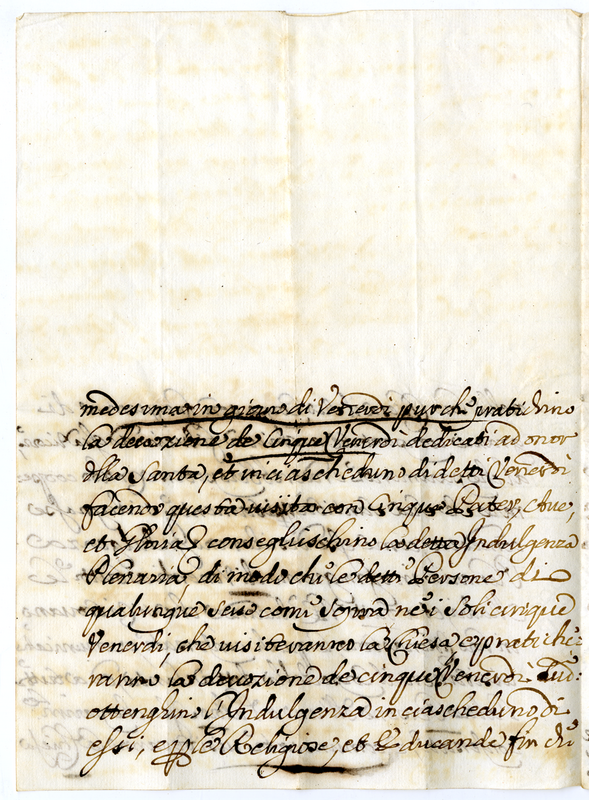 medesima in giorno di Venerdì purche pratichino
la devozione de Cinque Venerdì dedicati ad onor
della Santa, et in ciascheduno di detti Venerdì
facendo questa visita con cinque Pater, Ave,
et Gloria conseguischino la detta Indulgenza
Plenaria, di modo che le dette Persone di
qualunque sesso come sopra ne i soli cinque
Venerdì, che visiteranno la Chiesa e pratiche:
ranno la devozione de cinque Venerdì
ottenghino l'Indulgenza in ciascheduno di
essi, e le Religiose, et Educande fin che